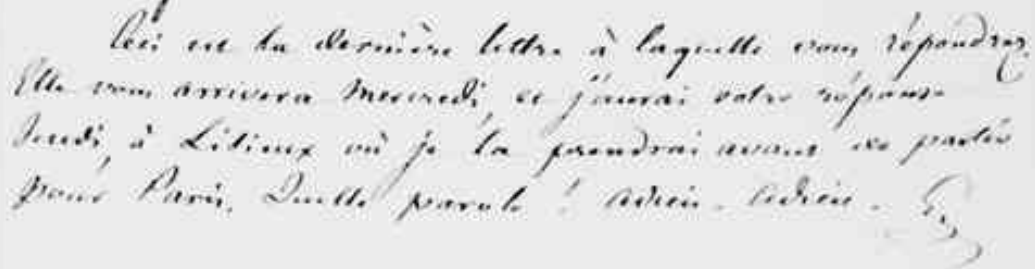 Ceci est la dernière lettre à laquelle vous répondrez.
Elle vous arrivera Mercredi, et j'aurai votre réponse
Jeudi, à Lisieux où je la prendrai avant de partir
pour Paris. Quelle parole ! Adieu - Adieu -